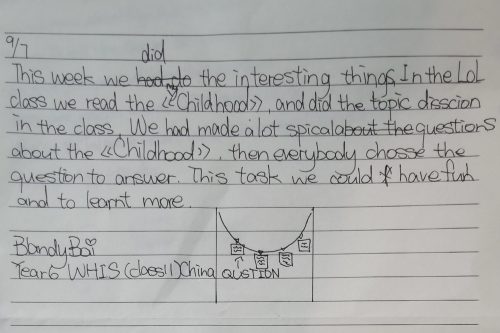 9/7
did
This week we had do the interesting things. In the LoL
my
class we read the 《Childhood》, and did the topic disscion
in the class. We had made a lot spical about the questions
about the 《Childhood》, then everybody chosse the
question to answer. This task we could have fun
and to learnt more.
Year 6 WHIS (class 11) China
QUSTION